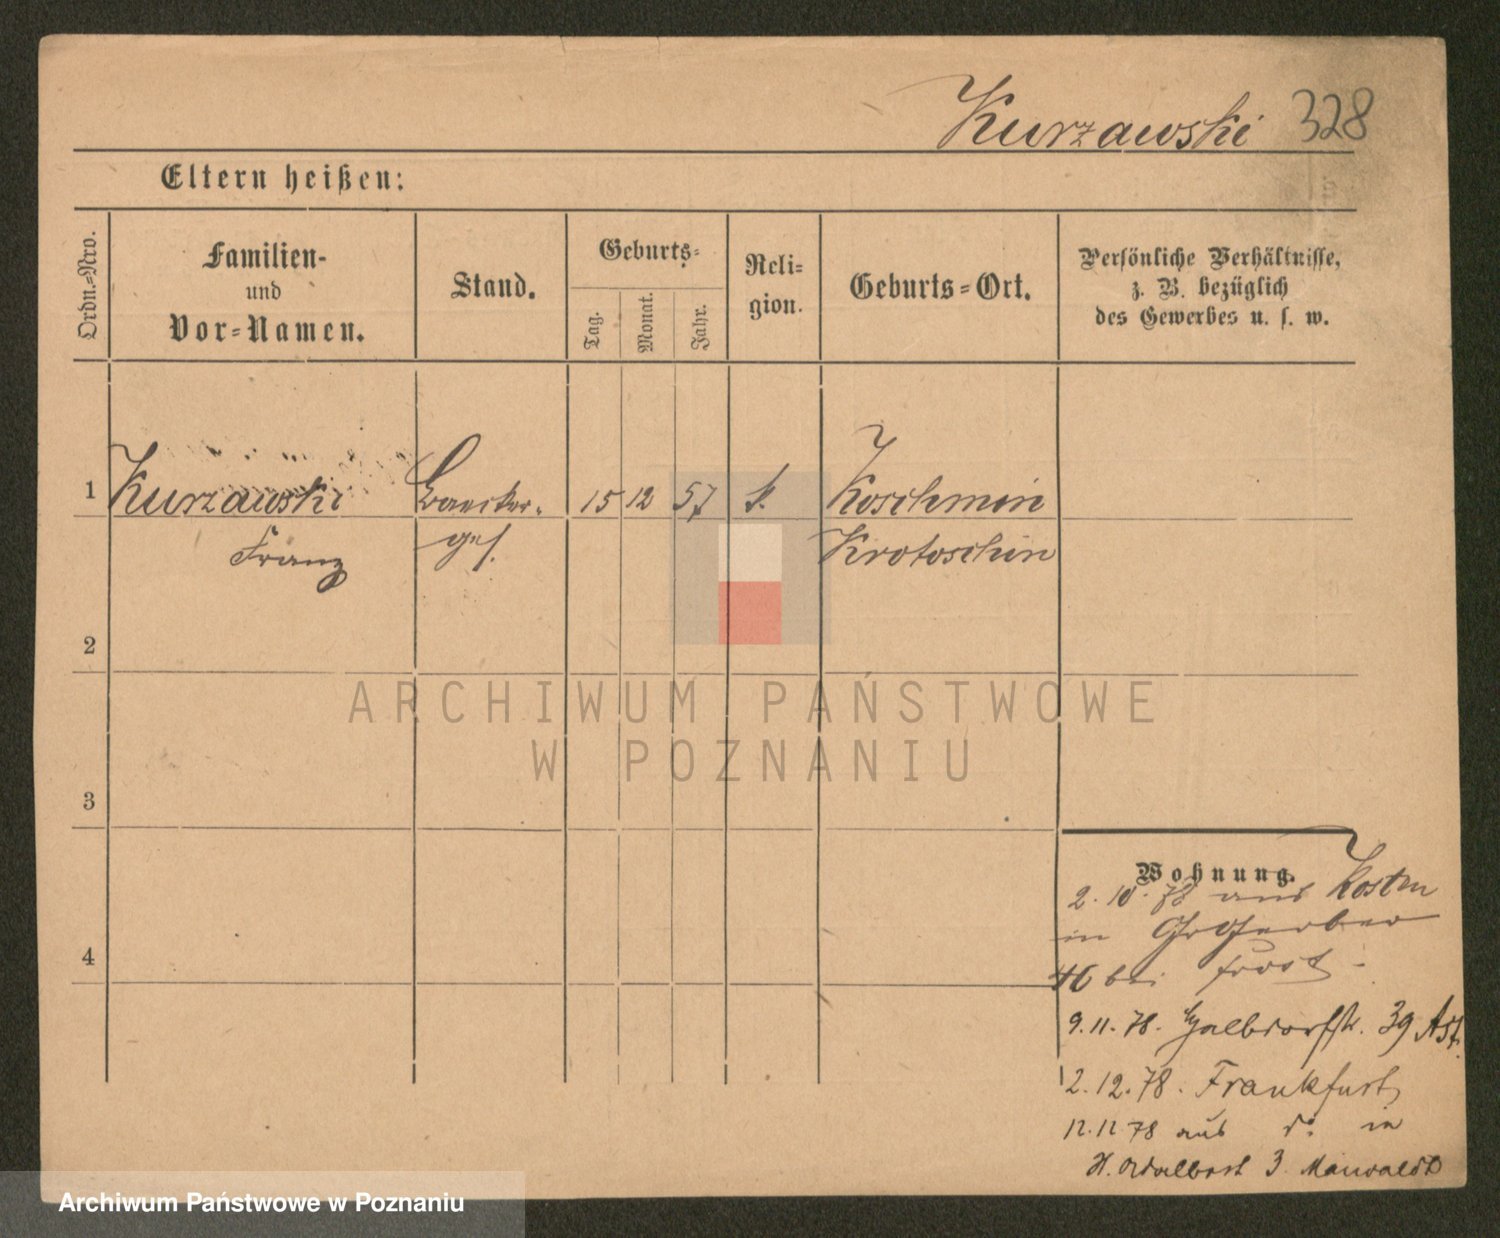 Kurzawski 328
Eltern heißen:
Ordn.=Nro.
Familien-
und
Vor=Namen.
Stand.
Geburts=
Tag.
Monat.
Jahr.
Reli=
gion.
Geburts=Ort.
Persönliche Verhältnisse,
z. B. bezüglich
des Gewerbes u. s. w.
1 Kurzawski Baecker- 15 12 57 k. Koschmin
Franz ges. Krotoschin
2
3
4
Wohnung.
2. 10. 78 aus Kosten
in Gr Gerber
46 bei Frost
9. 11. 78. Halbdorfstr. 39
2. 12. 78. Frankfurt
12. 12 78 aus do in
3
ARCHIWUM PAŃSTWOWE
W POZNANIU
Archiwum Państwowe w Poznaniu